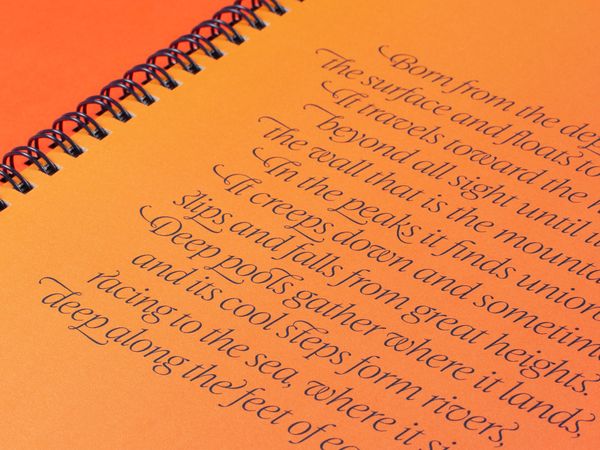 Born from the dep
the surface and floats to
It travels toward the
beyond all sight until it
the wall that is the mounta
In the peaks it finds union
It creeps down and sometime
slips and falls from great heights.
Deep pools gather where it lands,
and its cool steps form rivers,
racing to the sea, where it si
deep along the feet of